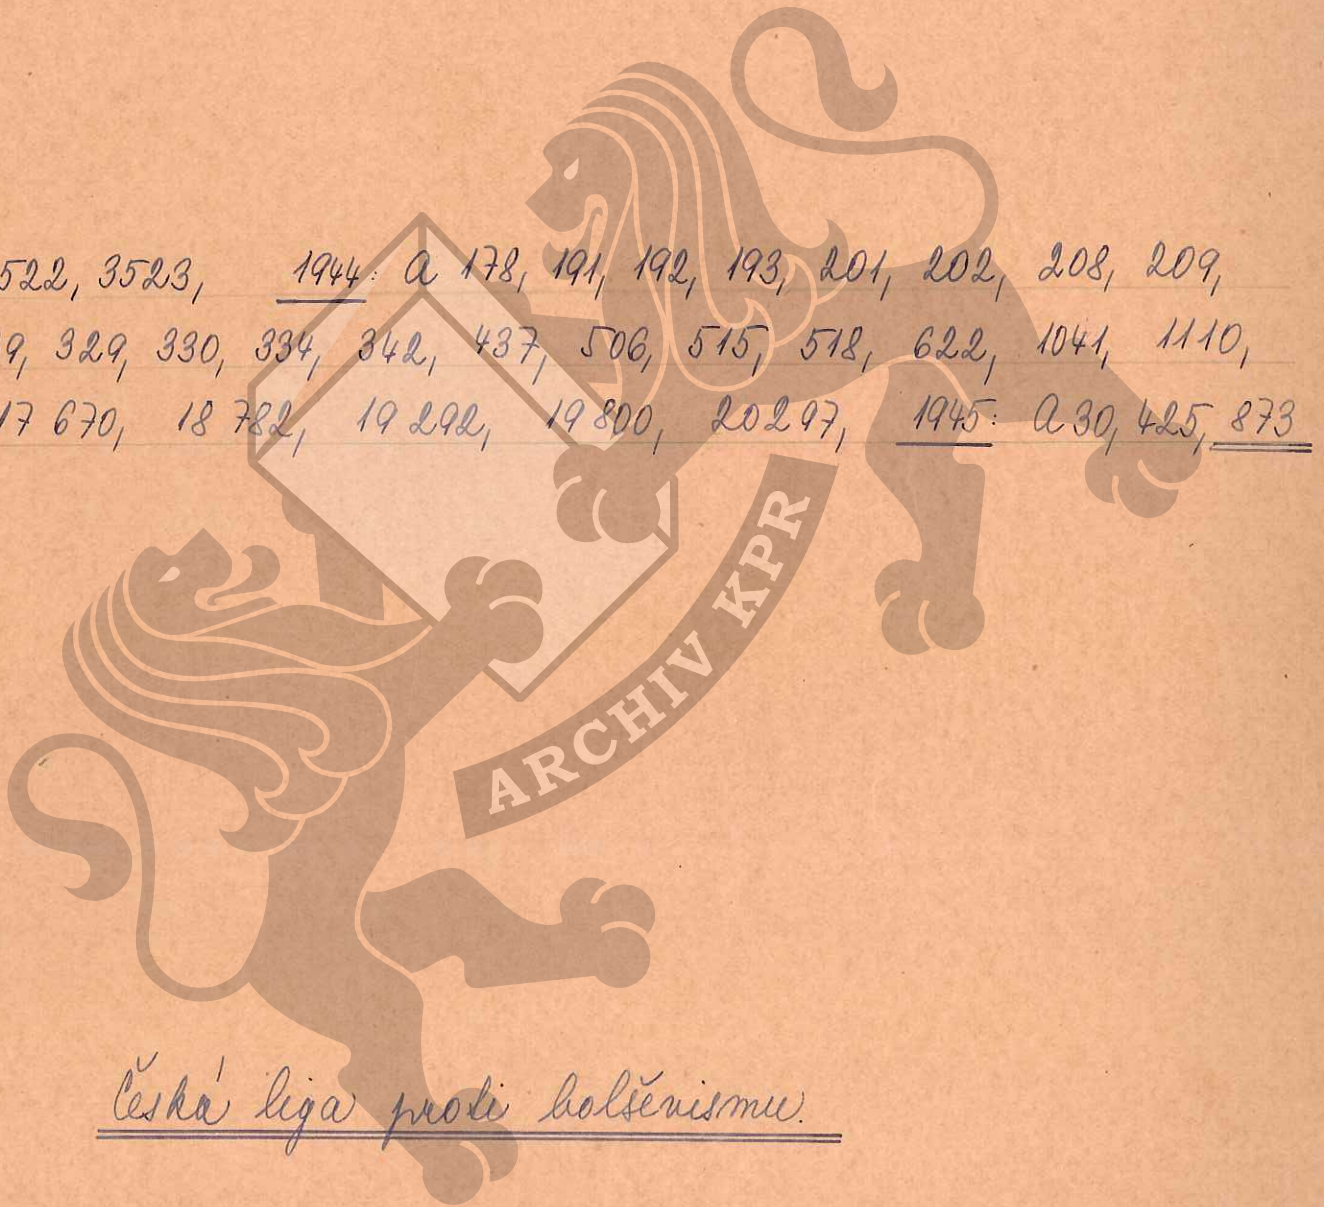 522, 3523, 1944: A 178, 191, 192, 193, 201, 202, 208, 209,
9, 329, 330, 334, 342, 437, 506, 515, 518, 622, 1041, 1110,
17 670, 18 782, 19 292, 19 800, 20 297, 1945: A 30, 425, 873
ARCHIV KPR
Česká liga proti bolševismu.